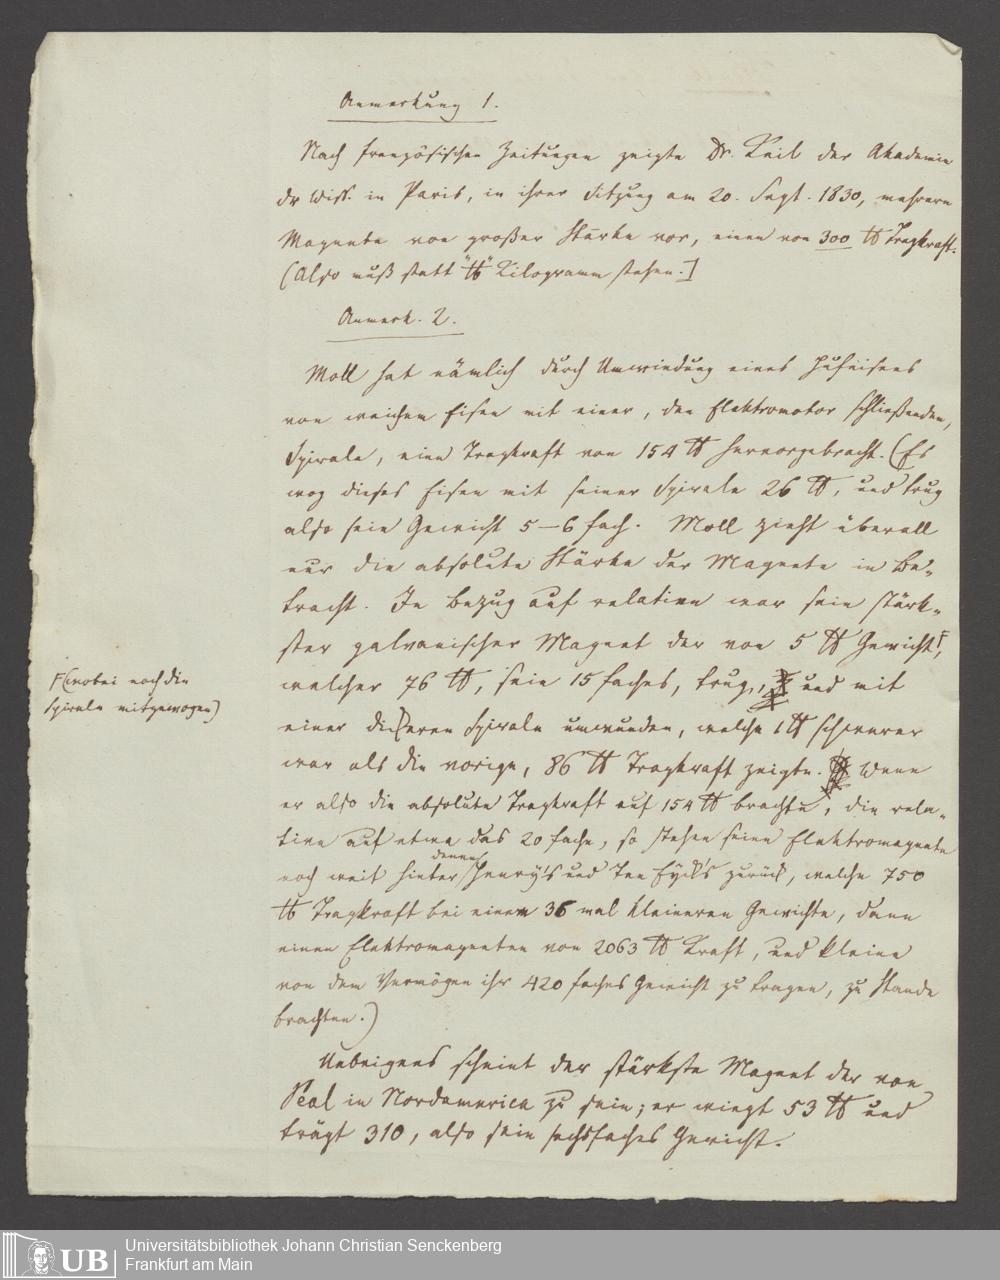 Anmerkung 1.
Nach französischen Zeitungen zeigte Dr. Keil der Akademie
der Wiss. in Paris, in ihrer Sitzung am 20. Sept. 1830, mehrere
Magnete von großer Stärke vor, einen von 300 ℔ Tragkraft.
(Also muß statt "℔" Kilogramm stehen.]
Anmerk. 2.
Moll hat nämlich durch Umwindung eines Hufeisens
von weichem Eisen mit einer, den Elektromotor schließenden,
Spirale, eine Tragkraft von 154 ℔ hervorgebracht. (Es
wog dieses Eisen mit seiner Spirale 26 ℔, und trug
also sein Gewicht 5–6 fach. Moll zieht überall
nur die absolute Stärke der Magnete in Be-
tracht. In Bezug auf relative war sein stärk-
ster galvanischer Magnet der von 5 ℔ Gewicht F,
F (wobei noch die
Spirale mitgewogen)
welcher 76 ℔, sein 15 faches, trug, und mit
einer dickeren Spirale umwunden, welche 1 ℔ schwerer
war als die vorige, 86 ℔ Tragkraft zeigte. Wenn
er also die absolute Tragkraft auf 154 ℔ brachte, die rela-
tive auf etwa das 20 fache, so stehen seine Elektromagnete
noch weit hinter denen Henry's und Ten Eyck's zurück, welche 750
℔ Tragkraft bei einem 36 mal kleineren Gewichte, dann
einen Elektromagneten von 2063 ℔ Kraft, und kleine
von dem Vermögen ihr 420 faches Gewicht zu tragen, zu Stande
brachten.)
Uebrigens scheint der stärkste Magnet der von
Peal in Nordamerica zu sein; er wiegt 53 ℔ und
trägt 310, also sein sechsfaches Gewicht.
UB
Universitätsbibliothek Johann Christian Senckenberg
Frankfurt am Main